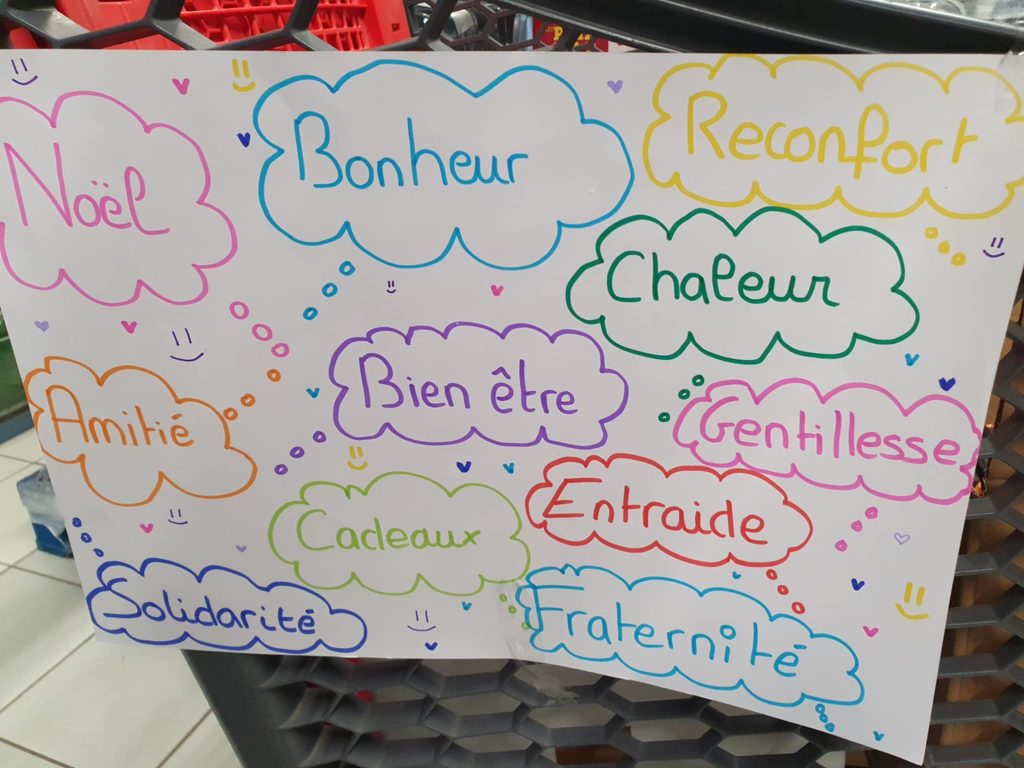 Noël
Bonheur
Reconfort
Chaleur
Amitié
Bien être
Gentillesse
Cadeaux
Entraide
Solidarité
Fraternité